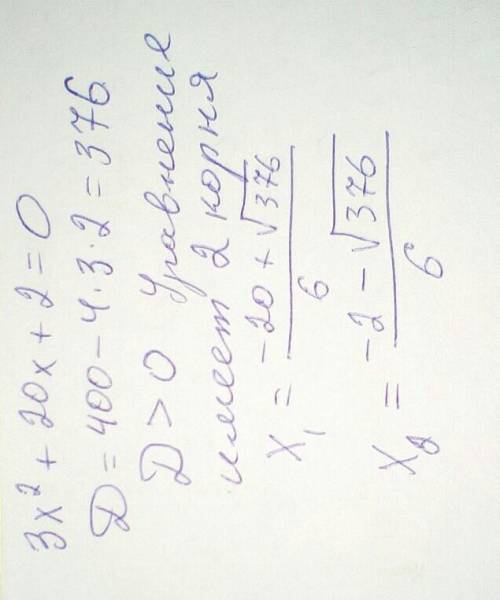 3x² + 20x + 2 = 0
D = 400 - 4·3·2 = 376
D > 0 Уравнение
имеет 2 корня
x₁ = (-20 + √376) / 6
x₂ = (-2 - √376) / 6